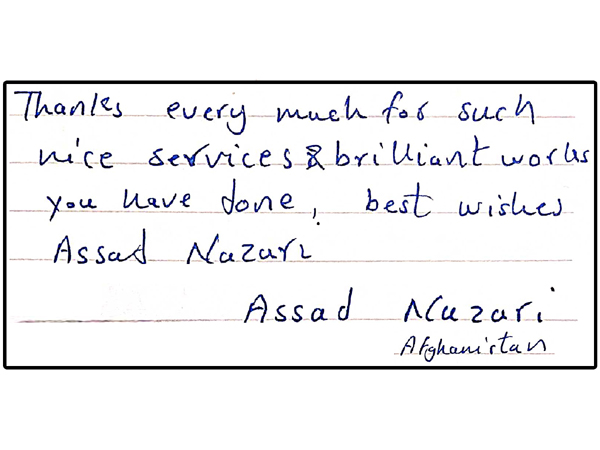 Thanks every much for such
nice services & brilliant works
you have done, best wishes
Assad Nazari
Assad Nazari
Afghanistan